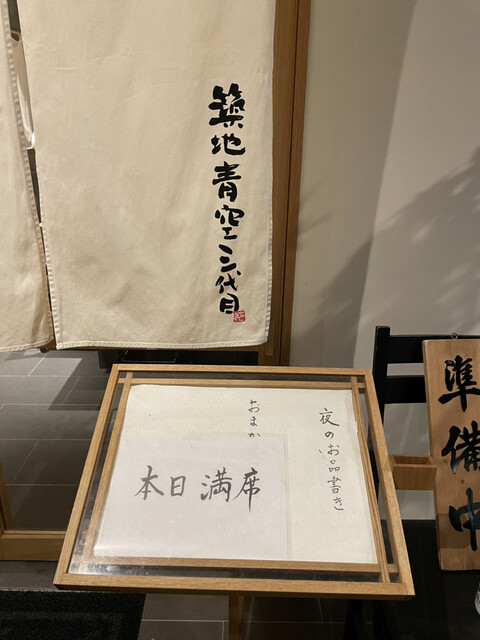 築地青空三代目
夜のお品書き
おまか
本日 満席
準備中